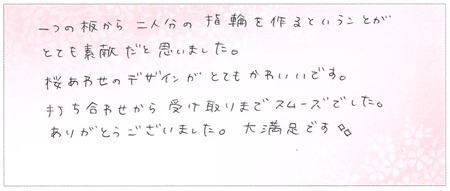 一つの板から 二人分の 指輪を作るということが
とても素敵だと思いました。
桜あわせのデザインが とてもかわいいです。
打ち合わせから 受け取りまでスムーズでした。
ありがとうございました。 大満足です